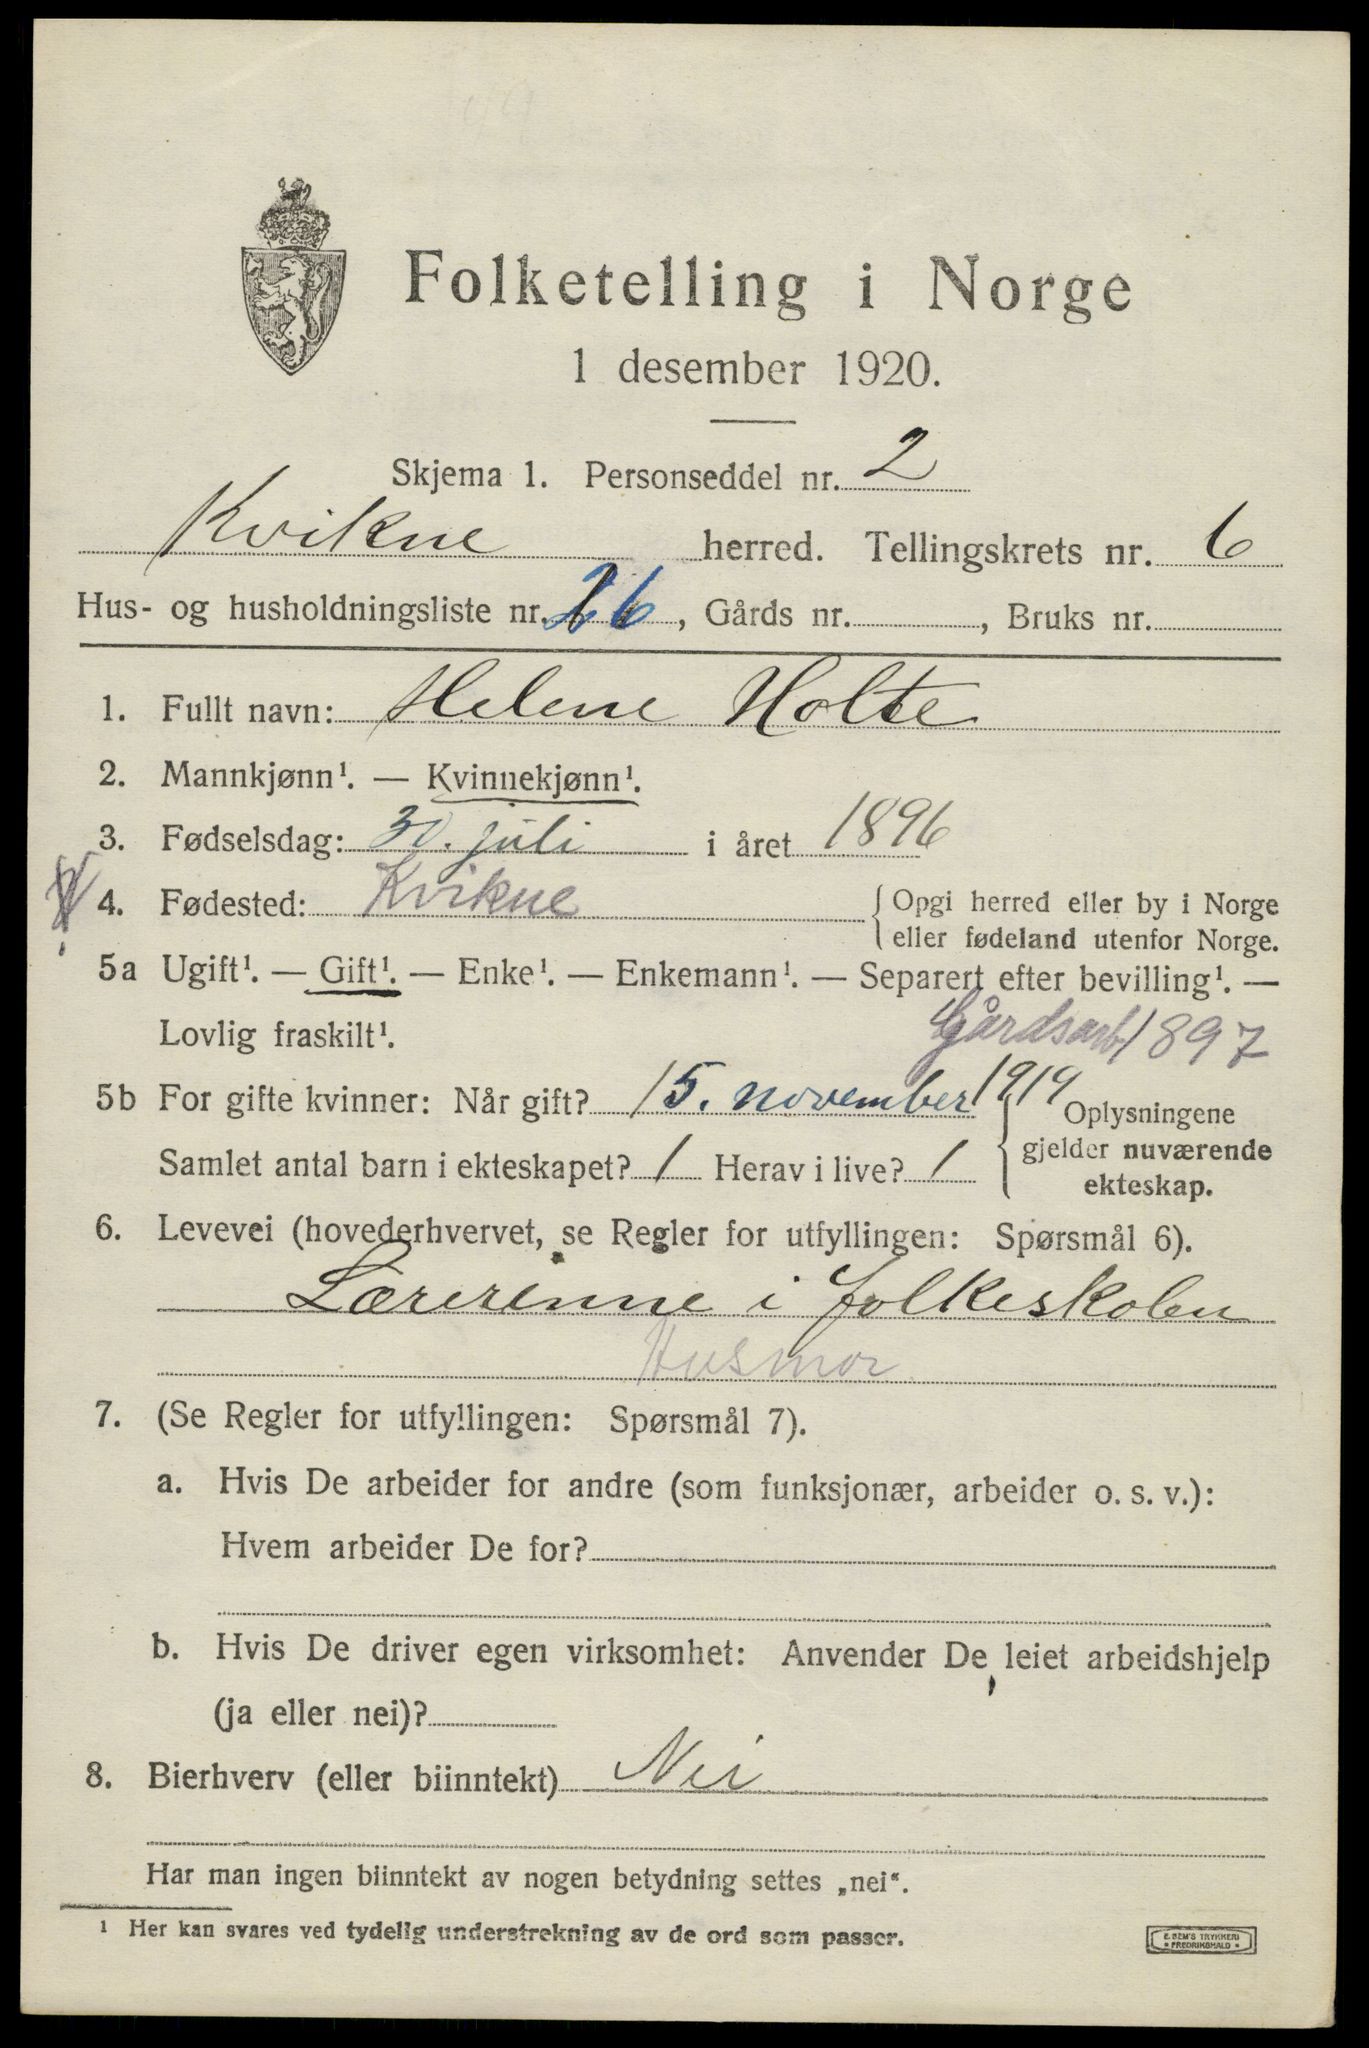 Folketelling i Norge
1 desember 1920.
Skjema 1. Personseddel nr. 2
Kvikne herred. Tellingskrets nr. 6
Hus- og husholdningsliste nr. 26, Gårds nr. , Bruks nr.
1. Fullt navn: Helene Holte
2. Mannkjønn¹. — Kvinnekjønn¹.
3. Fødselsdag: 30. juli i året 1896
4. Fødested: Kvikne { Opgi herred eller by i Norge
eller fødeland utenfor Norge.
5a Ugift¹. — Gift¹. — Enke¹. — Enkemann¹. — Separert efter bevilling¹. —
Lovlig fraskilt¹. Gårdsarb 1897
5b For gifte kvinner: Når gift? 15. november 1919
Oplysningene
Samlet antal barn i ekteskapet? 1 Herav i live? 1 { gjelder nuværende
ekteskap.
6. Levevei (hovederhvervet, se Regler for utfyllingen: Spørsmål 6).
Lærerinne i folkeskolen
Husmor
7. (Se Regler for utfyllingen: Spørsmål 7).
a. Hvis De arbeider for andre (som funksjonær, arbeider o. s. v.):
Hvem arbeider De for?
b. Hvis De driver egen virksomhet: Anvender De leiet arbeidshjelp
(ja eller nei)?
8. Bierhverv (eller biinntekt) Nei
Har man ingen biinntekt av nogen betydning settes „nei“.
¹ Her kan svares ved tydelig understrekning av de ord som passer.
E. SEM'S TRYKKERI
FREDRIKSHALD